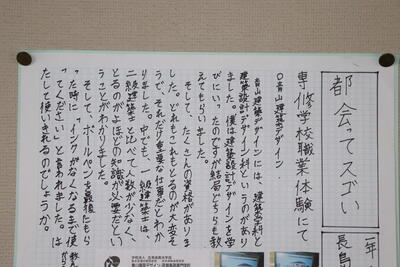 都会ってスゴい
専修学校職業体験にて
一年
長島
○青山建築デザイン
青山建築デザインには、建築学科と
建築設計デザイン科というのがあり
ました。僕は建築設計デザインを学
びにいったのですが結局どちらも教
えてもらいました。
そして、たくさんの資格がありま
した。どれもこれもとるのが大変そ
うで、それだけ重要な仕事だとわか
りました。中でも、一級建築士は、
二級建築士と比べて人数が少なく、
とるのがよほどの知識が必要だとい
うことがわかりました。
そして、ボールペンを最後もら
った時に「インクがなくなるまで使
ってください」と言われました。は
たして使いきれるのでしょうか。